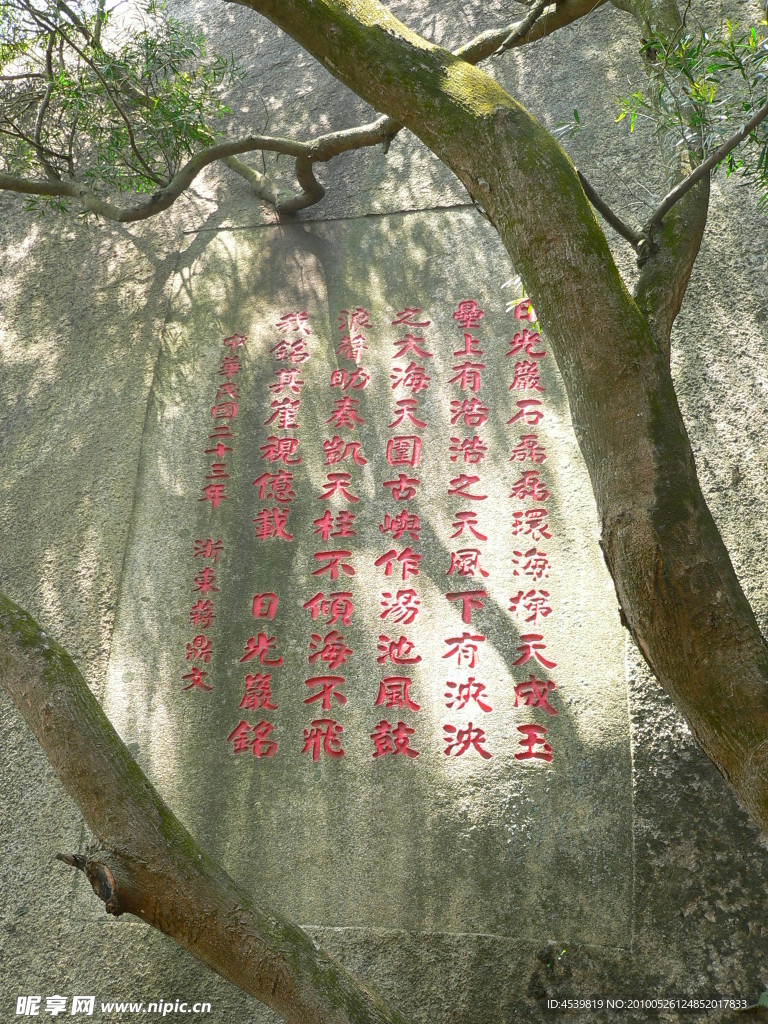 日光巖石磊磊環海梯天成玉
壘上有浩浩之天風下有泱泱
之大海天圍古嶼作湯池風鼓
浪聲助奏凱天柱不傾海不飛
我銘其崖視億載 日光巖銘
中華民國二十三年 浙東蔣鼎文
昵享网 www.nipic.cn
ID:4539819 NO:20100526124852017833